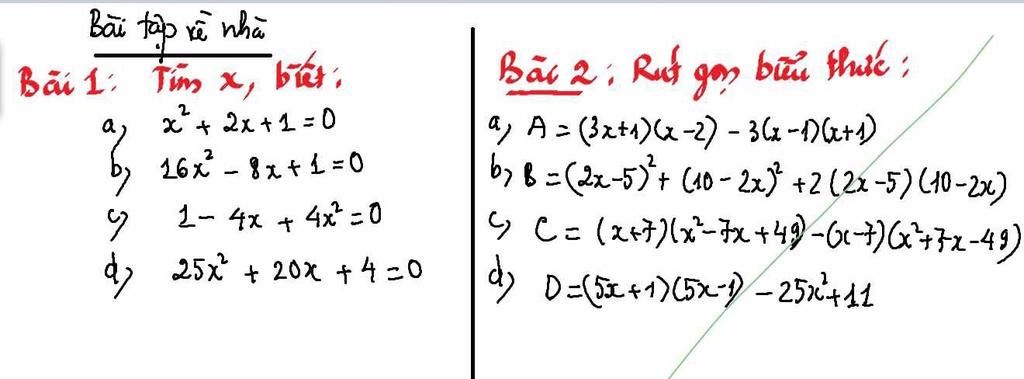 Bài tập về nhà
Bài 1: Tìm x, biết:
a) x² + 2x + 1 = 0
b) 16x² - 8x + 1 = 0
c) 1 - 4x + 4x² = 0
d) 25x² + 20x + 4 = 0
Bài 2: Rút gọn biểu thức:
a) A = (3x+1)(x-2) - 3(x-1)(x+1)
b) B = (2x-5)² + (10-2x)² + 2(2x-5)(10-2x)
c) C = (x+7)(x²-7x+49) - (x-7)(x²+7x-49)
d) D = (5x+1)(5x-1) - 25x² + 11